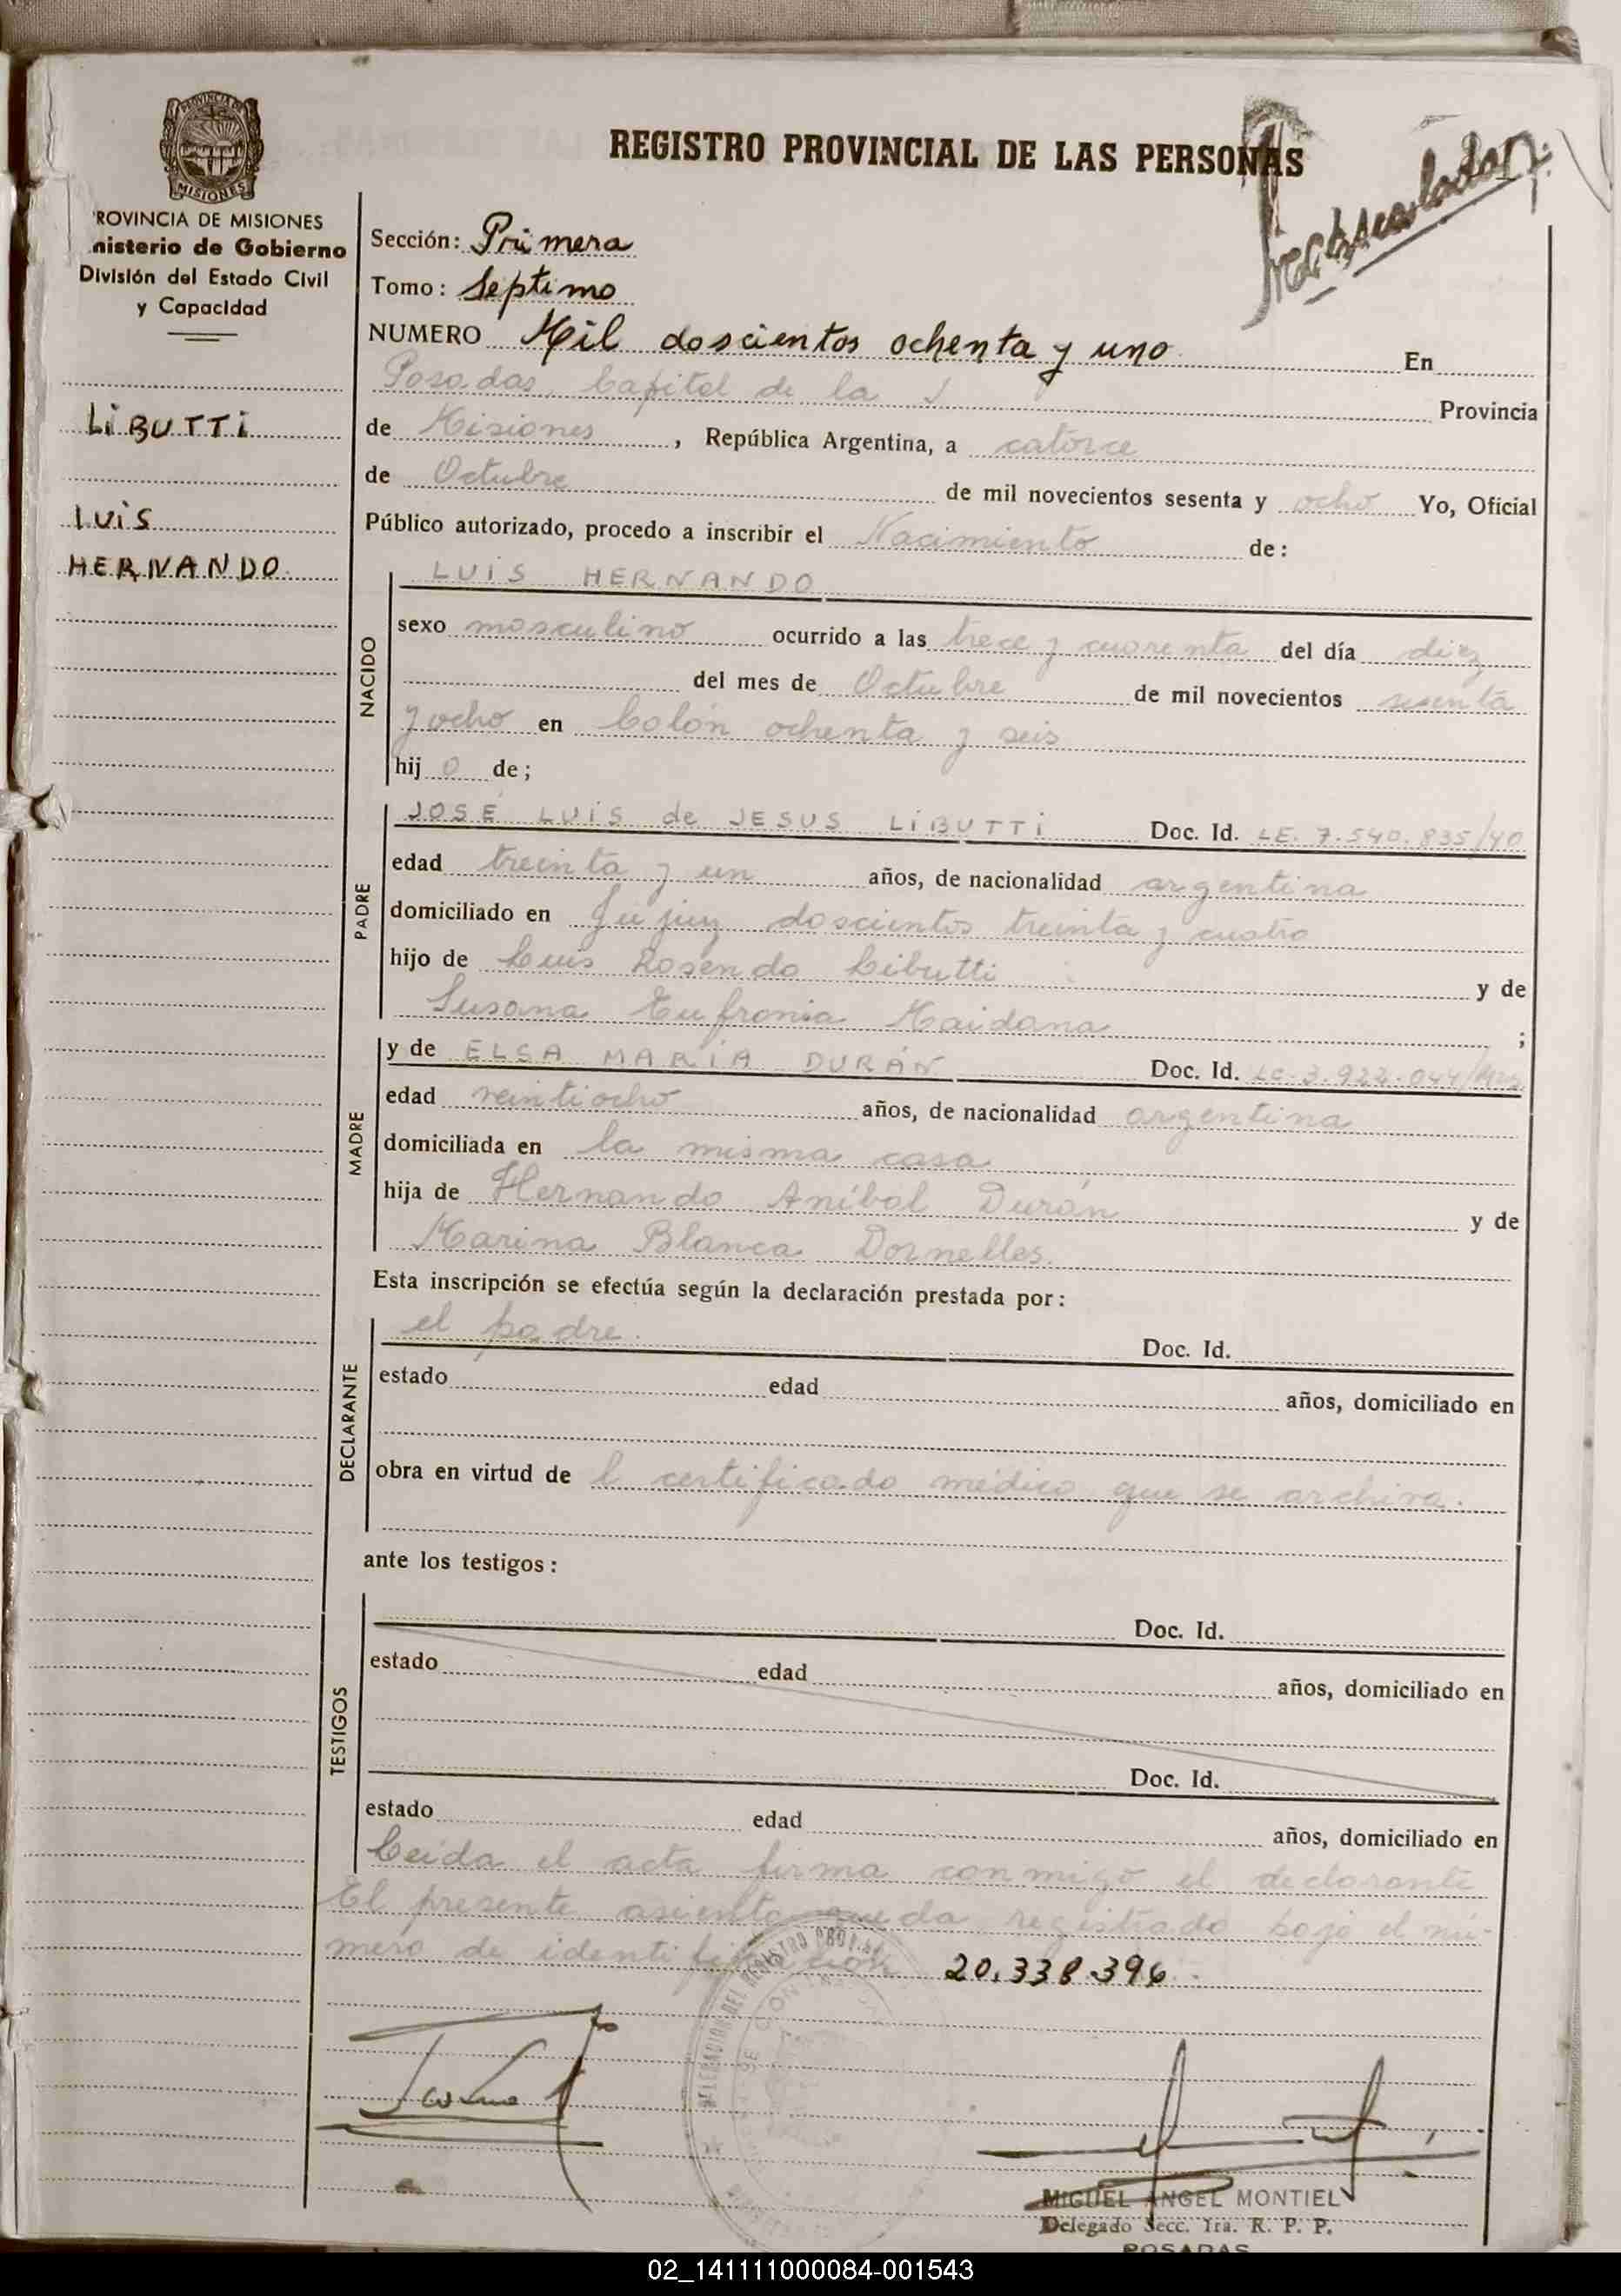 REGISTRO PROVINCIAL DE LAS PERSONAS
MISIONES
ROVINCIA DE MISIONES
nisterio de Gobierno
División del Estado Civil
y Capacidad
LiBUTTi
LUiS
HERNANDO
Sección: Primera
Tomo: Septimo
NUMERO Mil doscientos ochenta y uno En
Posadas, Capital de la Provincia
de Misiones, República Argentina, a catorce
de Octubre de mil novecientos sesenta y ocho Yo, Oficial
Público autorizado, procedo a inscribir el Nacimiento de:
NACIDO
LUiS HERNANDO
sexo masculino ocurrido a las trece y cuarenta del día diez
del mes de Octubre de mil novecientos sesenta
y ocho en Colón ochenta y seis
hij o de;
PADRE
JOSÉ LUiS de JESUS LiBUTTi Doc. Id. LE. 7.540.835/40
edad treinta y un años, de nacionalidad argentina
domiciliado en Jujuy doscientos treinta y cuatro
hijo de Luis Rosendo Libutti y de
Susana Eufronia Maidana ;
MADRE
y de ELSA MARÍA DURÁN Doc. Id. LC. 3.922.044
edad veintiocho años, de nacionalidad argentina
domiciliada en la misma casa
hija de Hernando Aníbal Durán y de
Marina Blanca Dornelles.
Esta inscripción se efectúa según la declaración prestada por:
DECLARANTE
el padre. Doc. Id.
estado edad años, domiciliado en
obra en virtud de l certificado médico que se archiva.
ante los testigos:
TESTIGOS
Doc. Id.
estado edad años, domiciliado en
Doc. Id.
estado edad años, domiciliado en
Leída el acta firma conmigo el declarante
El presente asiento queda registrado bajo el nú-
mero de identificación 20.338.396.
MIGUEL ANGEL MONTIEL
Delegado Secc. 1ra. R. P. P.
POSADAS
02_141111000084-001543